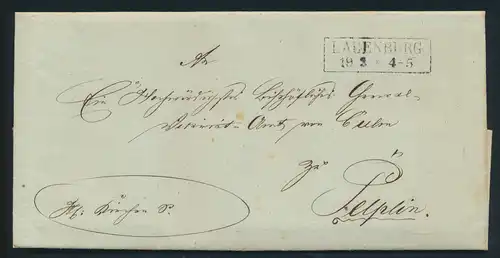 LAUENBURG
19 3 4-5
An
Ein Hochwürdigstes Bischöfliches General-
Vicariat-Amt von Culm
zu
Pelplin.
Kirchen S.